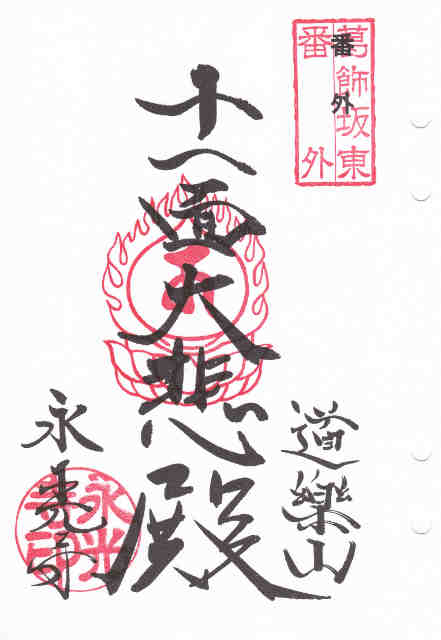 葛飾坂東
番外
番外
道樂山
十一面大悲殿
永光寺